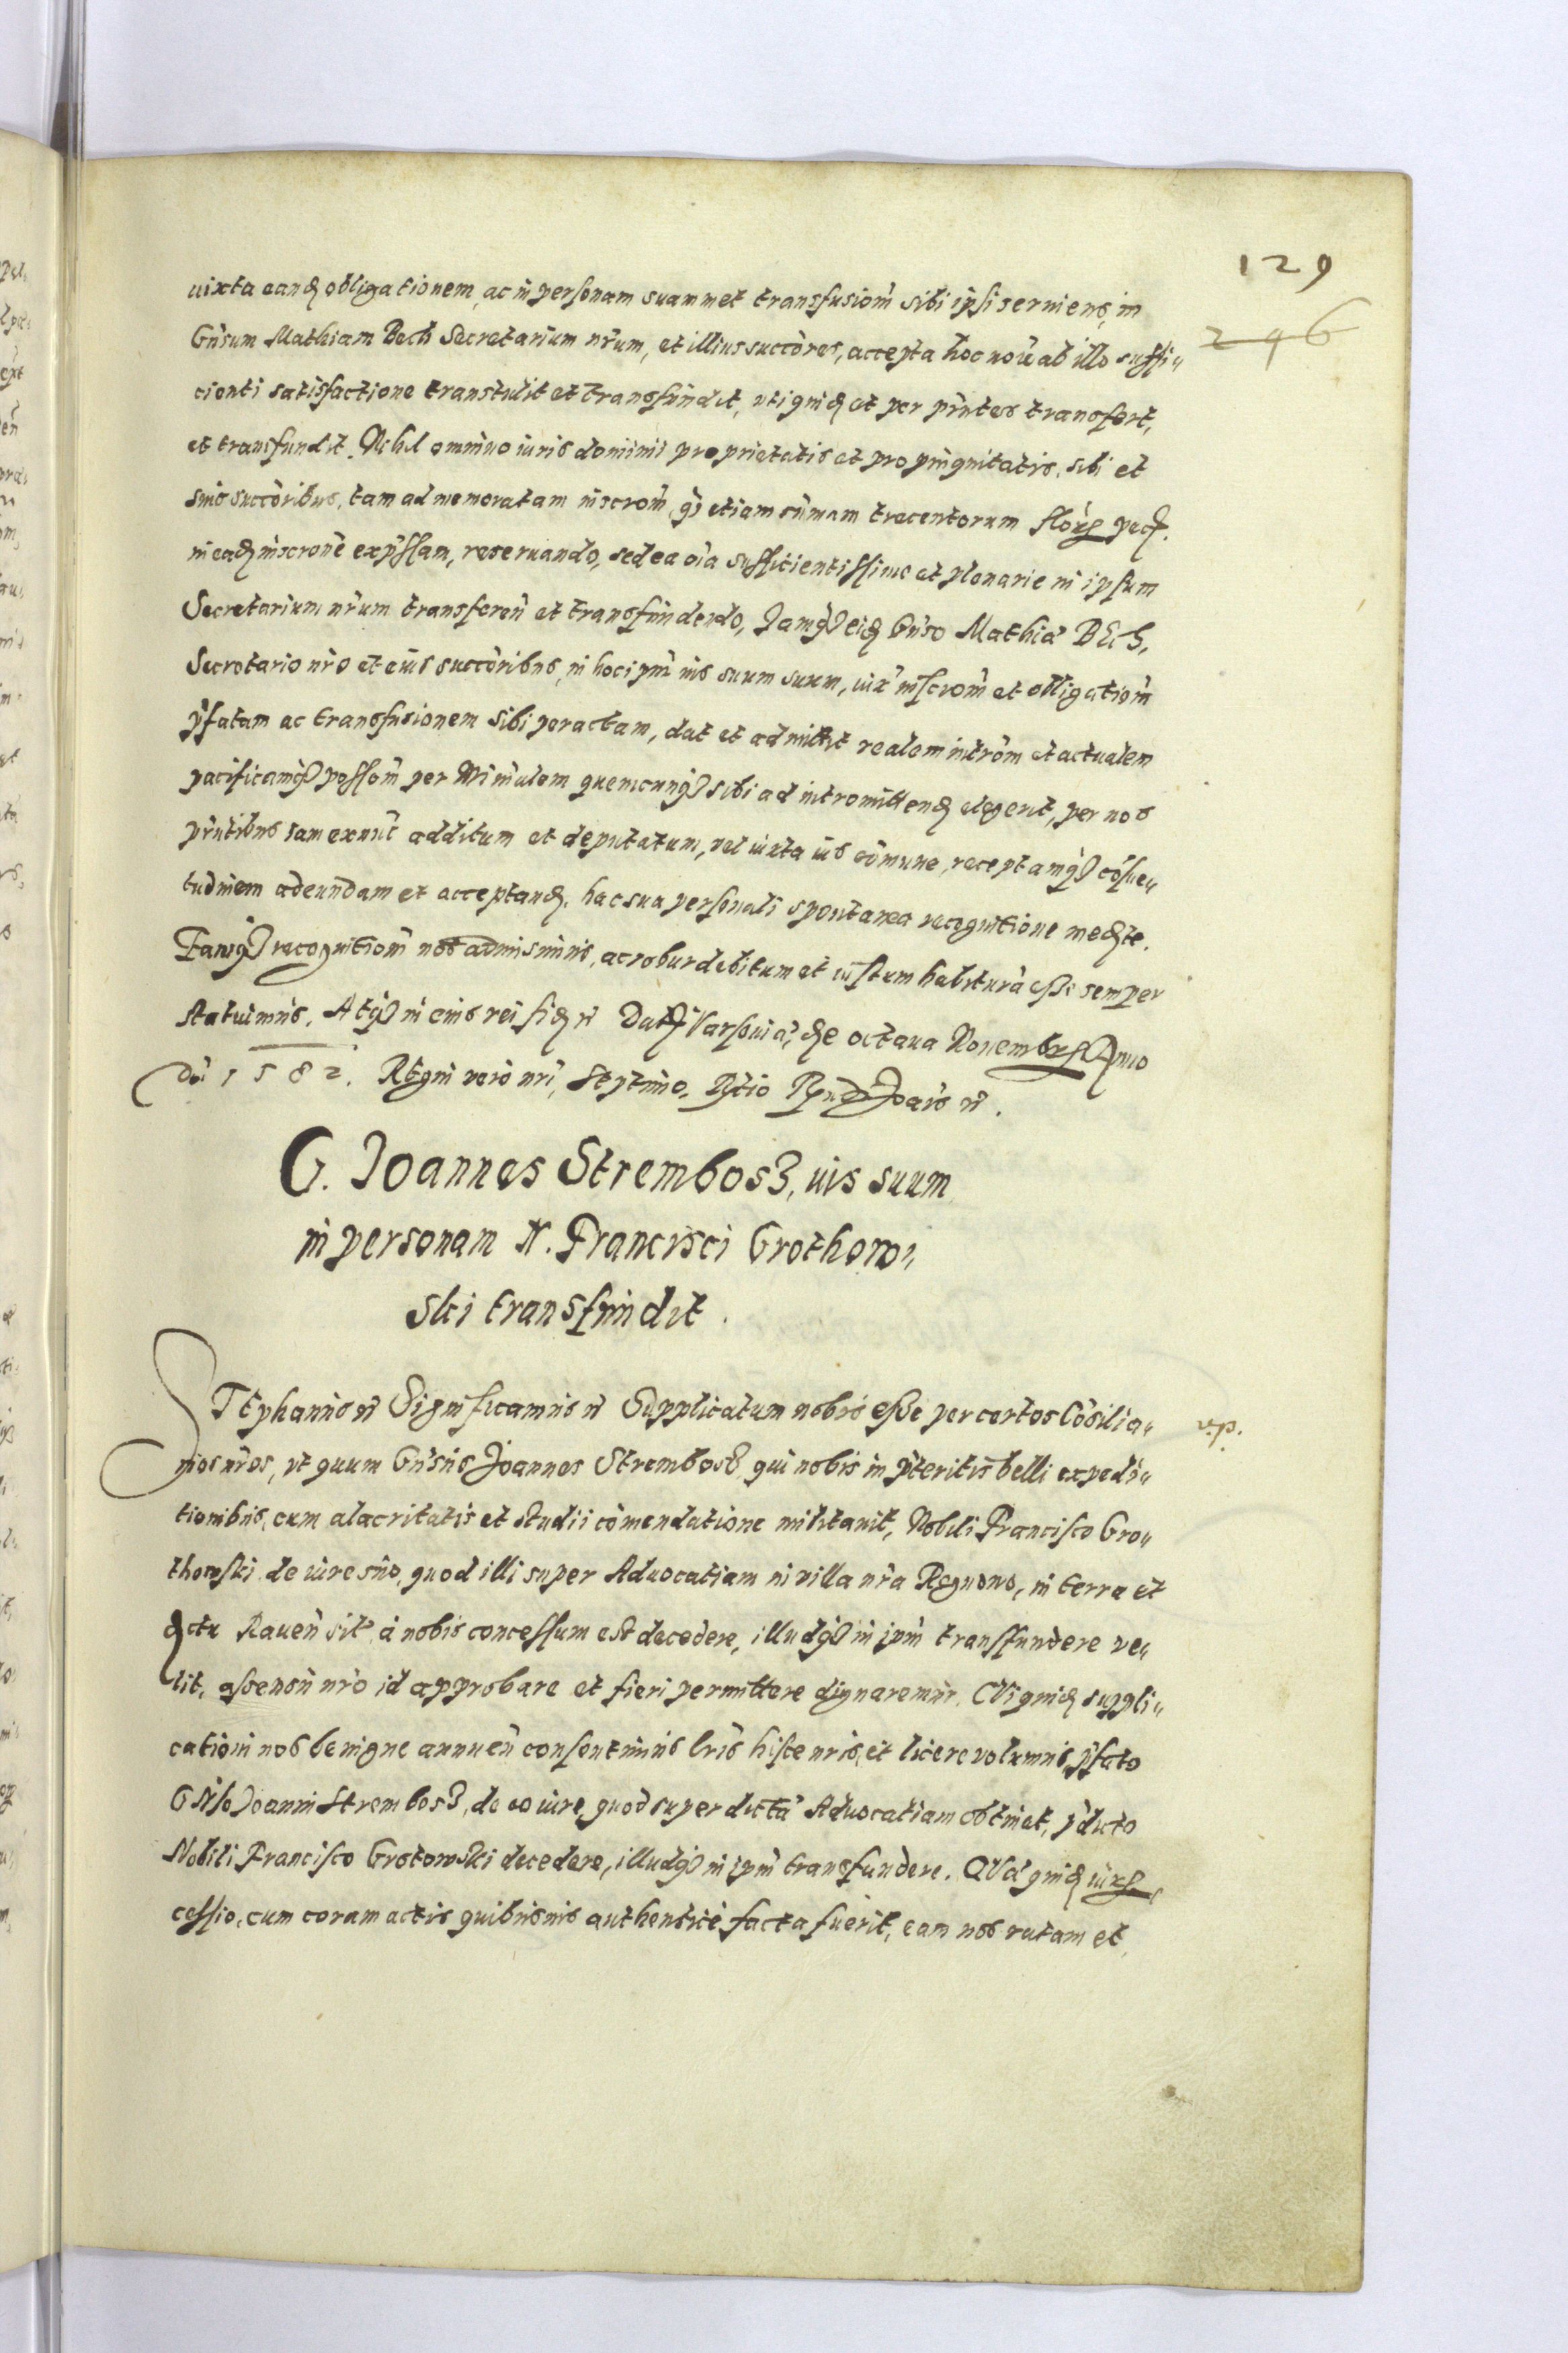 129
246
iuxta eand obligationem, ac in personam suammet transfusiom̃ sibi ipsi seruiens, in
Gñsum Mathiam Bech Secretarium nr̃um, et illius succores, accepta hoc noīe ab illo suffi„
cienti satisfactione transtulit et transfundit, uti quid et per pñtes transfert,
et transfundit. Nihil omnino iuris dominii proprietatis et propinquitatis, sibi et
suis succoribus, tam ad memoratam inscrom̃, q̃ etiam sum̃am trecentorum flor pec.
in ead inscrone exp̃ssam, reseruando, sed ea oĩa sufficientissime et plenarie in ipsum
Secretarium nr̃um transferen̄ et transfundendo, Jamq eid Gñso Mathiæ BEch,
Secretario nr̃o et eius succoribus, in hoc ipm̃ ius suum suum, iux̃ inscrom̃ et obligatiom̃
p̃fatam ac transfusionem sibi peractam, dat et admittit realem intrōm et actualem
pacificamq possom̃ per Minr̃alem quemcunq sibi ad intromittend elegerit, per nos
pñtibus iam exnunc additum et deputatum, vel iuxta ius com̃une, receptamq cõsue„
tudinem adeundam et acceptand. hac sua personali spontanea recognitione med̃te.
Tanq recognitiom̃ nos admisimus, ac robur debitum et iustum habiturã esse semper
statuimus. Atq in eius rei fid r̃ Dat Varsouiæ, die octaua Nouembr Anno
Dñi 1582. Regni vero nr̃i, Septimo. R̃tio R̃nd Joañis r̃.
G. Joannes Strembosz, ius suum
in personam N. Francisci Grothow„
ski transfundit.
STephanus r̃ Significamus r̃ Supplicatum nobis esse per certos Cõsilia„
v.p.
rios nr̃os, ut quum Gñsus Joannes Strembosz, qui nobis in p̃teritis belli expedi„
tionibus, cum alacritatis et studii com̃endatione militauit, Nobili Francisco Gro„
thowski de iure suo, quod illi super Aduocatiam in villa nr̃a Regnowo, in terra et
Dctu Rauen̄ sit̃ à nobis concessum est decedere, illudq in ipm̃ transfundere ve„
lit, assensu nr̃o id approbare et fieri permittere dignaremur. CVi quid suppli„
cationi nos benigne annuen̄ consentimus lr̃is hisce nr̃is, et licere volumus, p̃fato
GNso Joanni Strembosz, de eo iure, quod super dictã Aduocatiam obtinet, p̃dicto
Nobili Francisco Grotowski decedere, illudq in ipm̃ transfundere. QVæ quid iur
cessio, cum coram actis quibusuis authenticè facta fuerit, eam nos ratam et